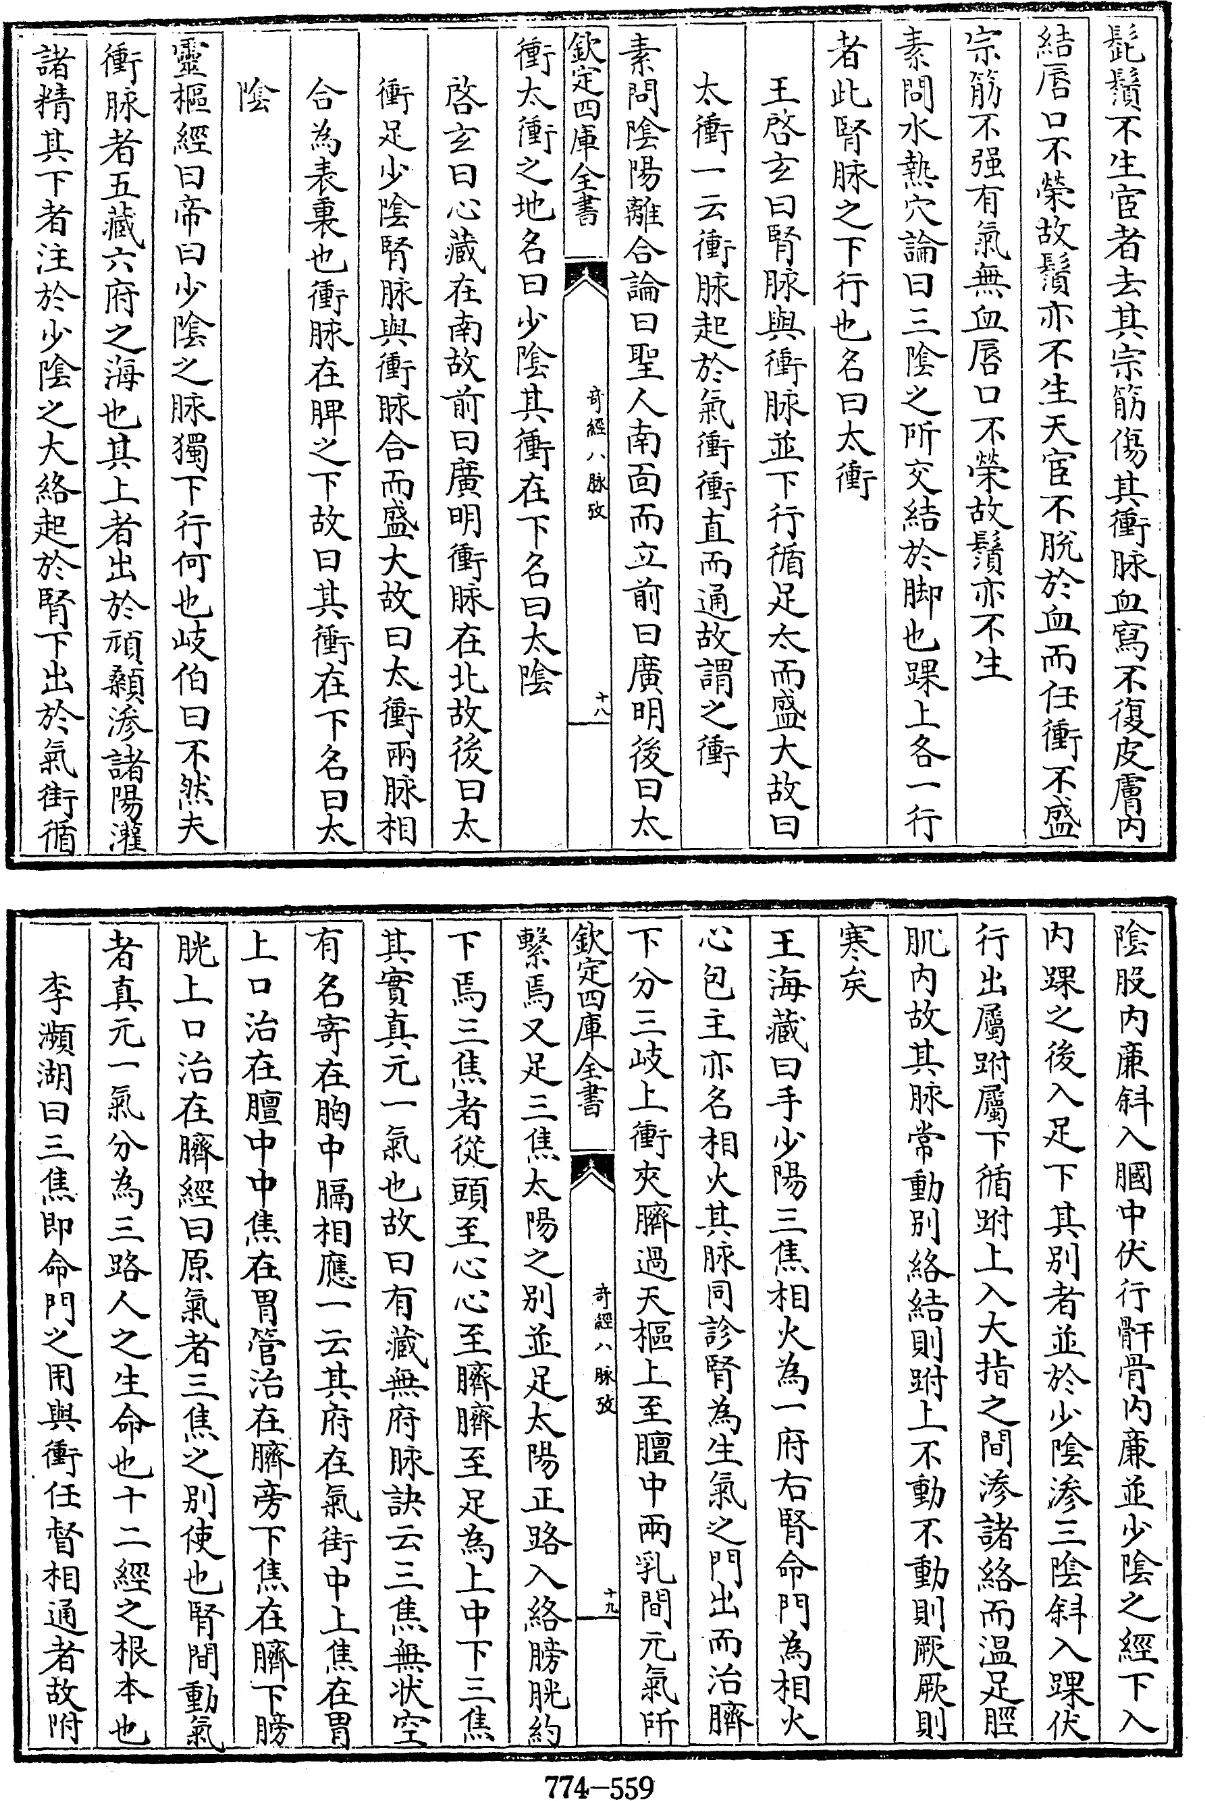 髭鬚不生宦者去其宗筋傷其衝脉血寫不復皮膚内
結唇口不榮故鬚亦不生天宦不脱於血而任衝不盛
宗筋不强有氣無血唇口不榮故鬚亦不生
素問水熱穴論曰三陰之所交結於脚也踝上各一行
者此腎脉之下行也名曰太衝
王啓玄曰腎脉與衝脉並下行循足太而盛大故曰
太衝一云衝脉起於氣衝衝直而通故謂之衝
素問陰陽離合論曰聖人南面而立前曰廣明後曰太
欽定四庫全書
奇經八脉攷
十八
衝太衝之地名曰少陰其衝在下名曰太陰
啓玄曰心藏在南故前曰廣明衝脉在北故後曰太
衝足少陰腎脉與衝脉合而盛大故曰太衝兩脉相
合為表裏也衝脉在脾之下故曰其衝在下名曰太
陰
靈樞經曰帝曰少陰之脉獨下行何也岐伯曰不然夫
衝脉者五藏六府之海也其上者出於頏顙滲諸陽灌
諸精其下者注於少陰之大絡起於腎下出於氣街循
陰股内廉斜入膕中伏行骭骨内廉並少陰之經下入
内踝之後入足下其别者並於少陰滲三陰斜入踝伏
行出屬跗屬下循跗上入大指之間滲諸絡而温足脛
肌肉故其脉常動别絡結則跗上不動不動則厥厥則
寒矣
王海藏曰手少陽三焦相火為一府右腎命門為相火
心包主亦名相火其脉同診腎為生氣之門出而治臍
下分三岐上衝夾臍過天樞上至膻中兩乳間元氣所
欽定四庫全書
奇經八脉攷
十九
繫焉又足三焦太陽之别並足太陽正路入絡膀胱約
下焉三焦者從頭至心心至臍臍至足為上中下三焦
其實真元一氣也故曰有藏無府脉訣云三焦無状空
有名寄在胸中膈相應一云其府在氣街中上焦在胃
上口治在膻中中焦在胃管治在臍旁下焦在臍下膀
胱上口治在臍經曰原氣者三焦之别使也腎間動氣
者真元一氣分為三路人之生命也十二經之根本也
李瀕湖曰三焦即命門之用與衝任督相通者故附
774—559